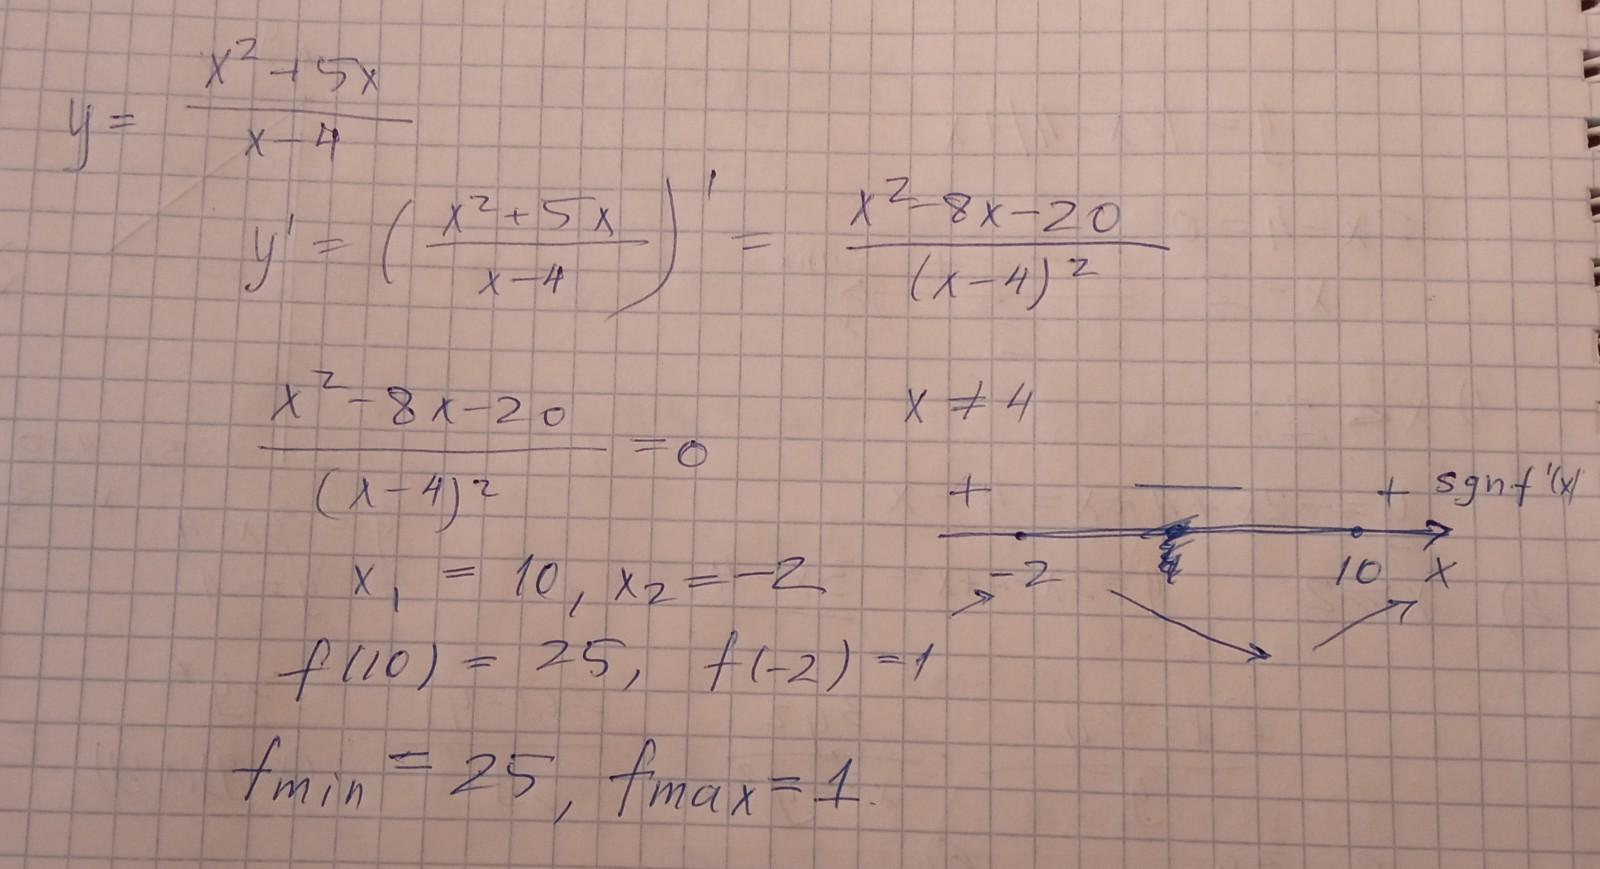 y = (x² + 5x)/(x - 4)
y' = ((x² + 5x)/(x - 4))' = (x² - 8x - 20)/(x - 4)²
(x² - 8x - 20)/(x - 4)² = 0 x ≠ 4
+ — + sgn f'(x)
-2 10 x
x₁ = 10, x₂ = -2
f(10) = 25, f(-2) = 1
fmin = 25, fmax = 1.